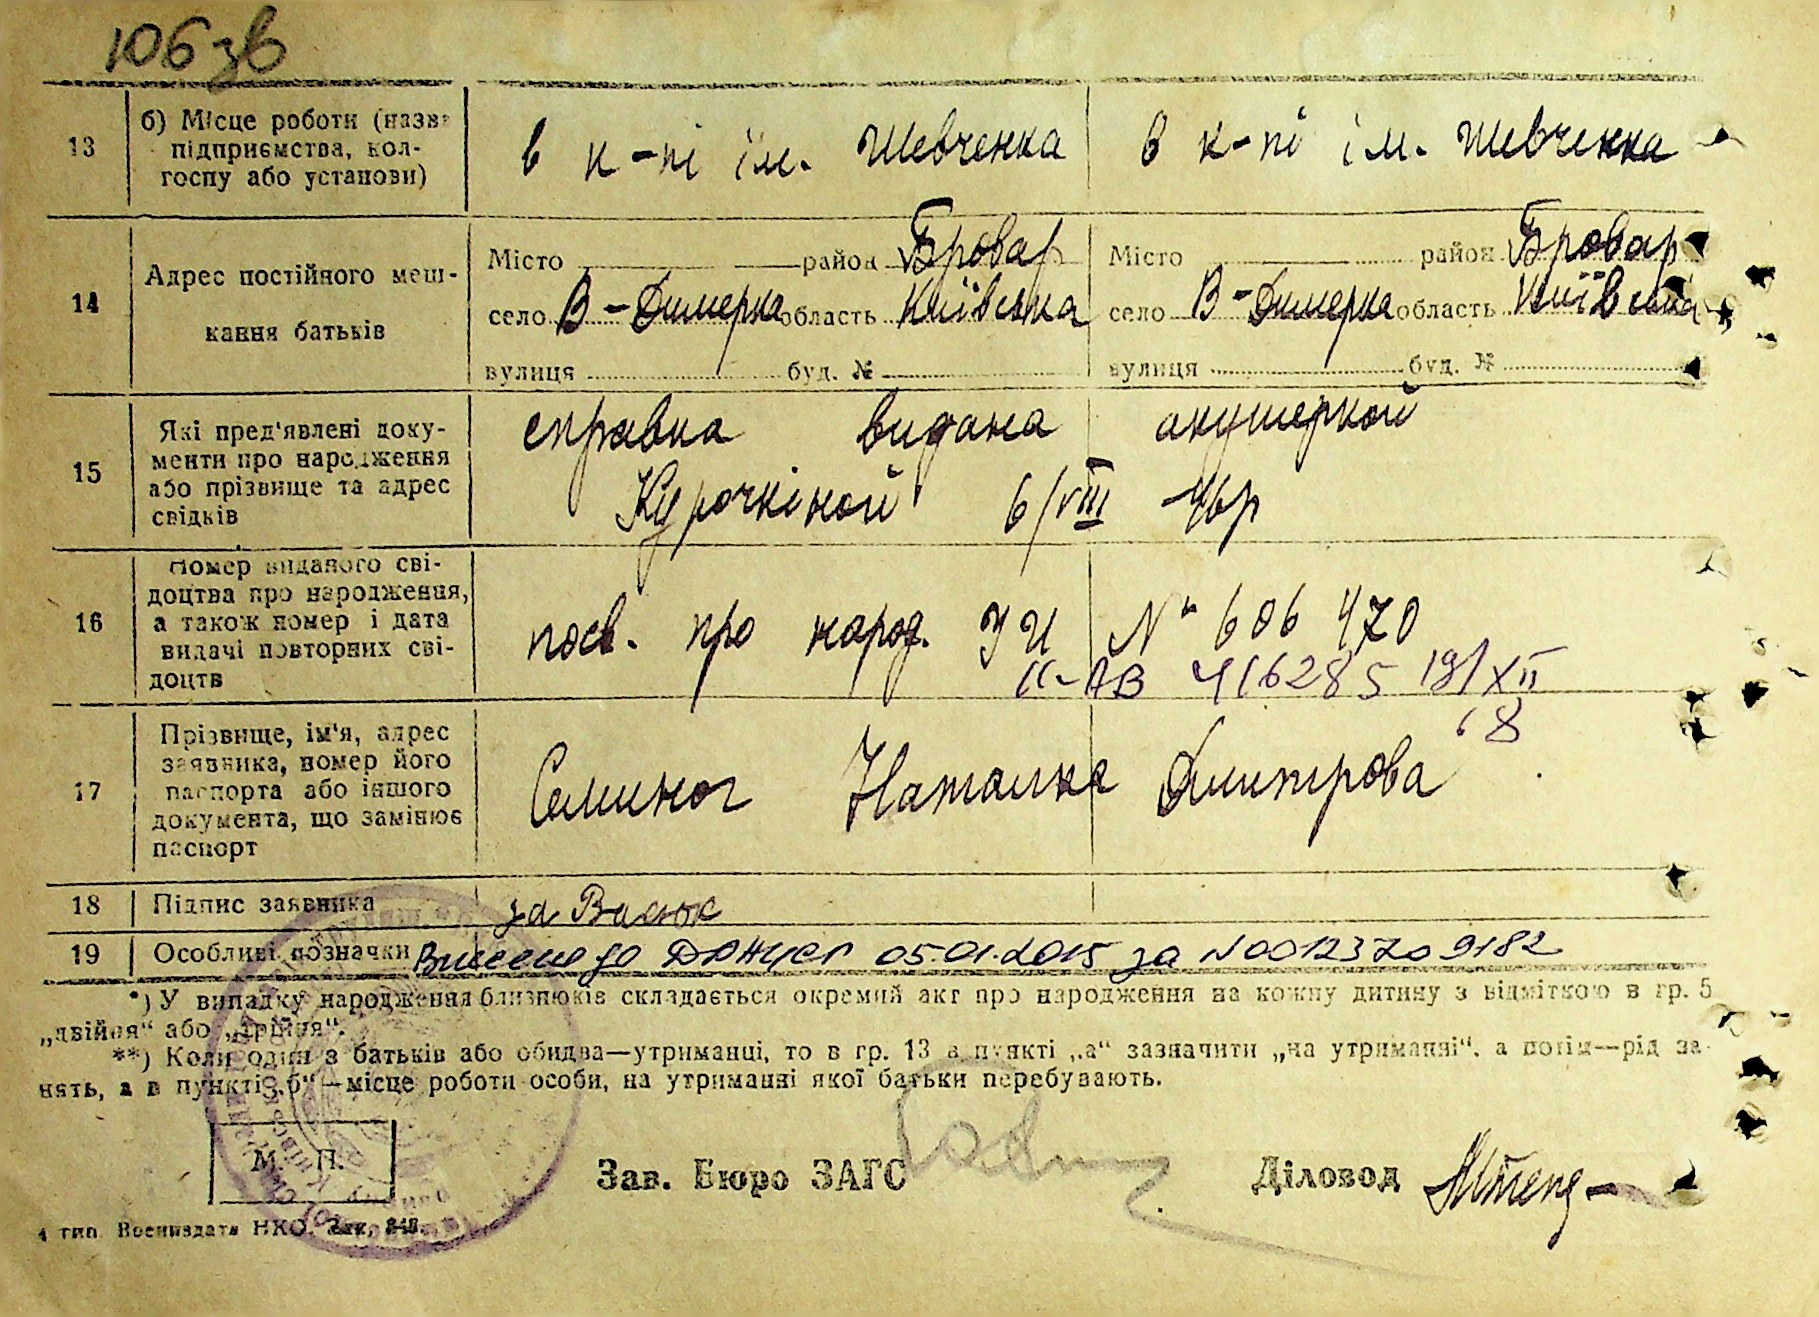 106 зв
13 б) Місце роботи (назва підприємства, колгоспу або установи) в к-пі ім. Шевченка в к-пі ім. Шевченка
14 Адрес постійного мешкання батьків
Місто район Бровар Місто район Бровар
село В-Димерка область Київська село В-Димерка область Київська
вулиця буд. № вулиця буд. №
15 Які пред'явлені документи про народження або прізвище та адрес свідків
справка видана акушеркой
Курочкіной 6/VIII 46р
16 Номер виданого свідоцтва про народження, а також номер і дата видачі повторних свідоцтв
посв. про народ. УИ № 606470
II-АВ 416285 19/XII
68
17 Прізвище, ім'я, адрес заявника, номер його паспорта або іншого документа, що замінює паспорт
Семиног Наталка Дмитрова
18 Підпис заявника за
19 Особливі позначки Внесено до ДРАЦСГ 05.01.2015 за N00123709182
*) У випадку народження близнюків складається окремий акт про народження на кожну дитину з відміткою в гр. 5
„двійня“ або „трійня“.
**) Коли один з батьків або обидва—утриманці, то в гр. 13 в пункті „а“ зазначити „на утриманні“, а потім—рід за-
нять, а в пункті „б“—місце роботи особи, на утриманні якої батьки перебувають.
М. П.
Зав. Бюро ЗАГС Діловод
4 тип. Воениздата НКО. Зак.